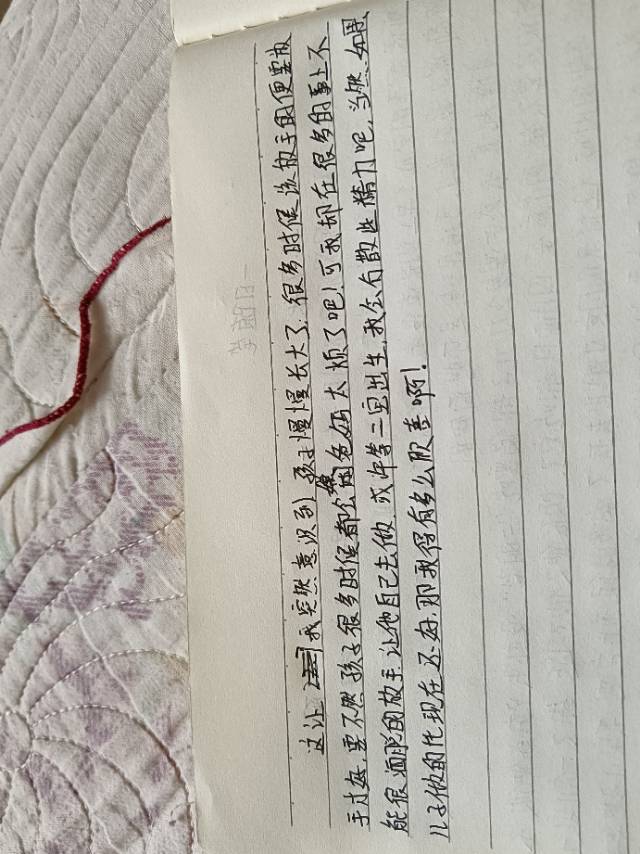 这让我突然意识到,孩子慢慢长大了,很多时候该放手的便要放
手才好,要不然孩子很多时候都会嫌爸妈太烦了吧!可我却在很多的事上不
能很洒脱的放手,让他自己去做,或许等二宝出生,我会有散些精力吧,当然,如果
儿子他的比现在还好,那我得有多么欣喜啊!